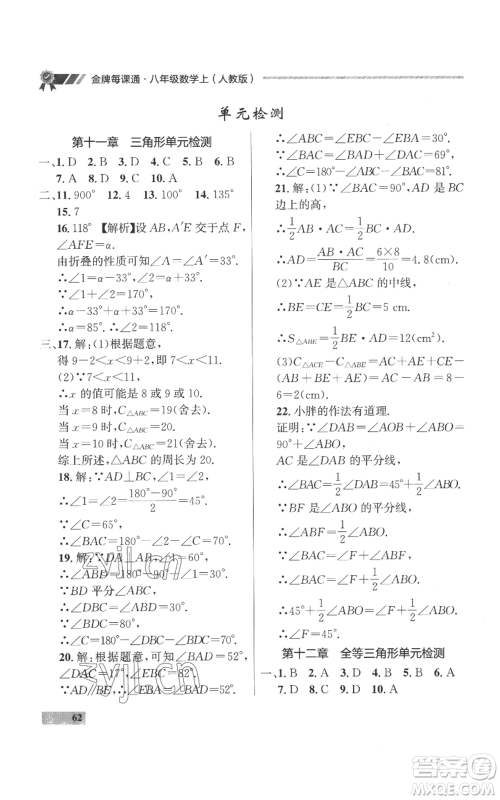 金牌每课通·八年级数学上(人教版)
单元检测
第十一章 三角形单元检测
一、1. D 2. B 3. D 4. C 5. B 6. B
7. A 8. D 9. C 10. A
二、11. 900° 12. 4 13. 100° 14. 135°
15. 7
16. 118° 【解析】设 AB,A′E 交于点 F,
∠AFE=α.
由折叠的性质可得.
∴∠1=α-33°,∠2=α+33°.
∵∠1+∠2=170°,
∴α-33°+α+33°=170°.
∴α=85°. ∴∠2=118°.
三、17. 解:(1)根据题意,
得 9-2<x<9+2,即 7<x<11.
∴x 的值可能是 8 或 9 或 10.
当 x=8 时,C△ABC=19(舍去).
当 x=9 时,C△ABC=20.
当 x=10 时,C△ABC=21(舍去).
综上所述,△ABC 的周长为 20.
18. 解:∵∠1=∠2,∠B=90°,
∴∠1=∠2=(180°-90°)/2=45°.
∵∠C=60°,
∴∠BAC=180°-∠B-∠C=30°.
19. 解:∵DA⊥AB,∠A=60°,
∴∠ABD=180°-90°-∠A=30°.
∵BD 平分∠ABC,
∴∠DBC=∠ABD=30°.
∵∠BDC=80°,
∴∠C=180°-∠DBC-∠BDC=70°.
20. 解:根据题意,可知∠BAD=52°,
∵AD//BE,∴∠ABE=∠BAD=52°.
∴∠ABC=∠ABE-∠CBE=31°.
∵∠BAC=∠BAD+∠CAD=80°,
∴∠C=180°-∠ABC-∠BAC=69°.
21. 解:(1)∵∠BAC=90°,AD 是 BC
边上的高,
∴1/2AB·AC=1/2BC·AD.
∴AD=AB·AC/BC=6×8/10=4.8(cm).
(2)∵AE 是△ABC 的中线,
∴BE=1/2BC=5(cm).
∴S△ABE=1/2BE·AD=12(cm²).
(3)C△ACE-C△ABE=AC+AE+CE
-(AB+AE+BE)=AC-AB=8-
6=2(cm).
22. 小胖的作法有道理.
证明:∵∠DAB=∠AOB+∠ABO=
90°+∠ABO,
AC 是∠DAB 的平分线,
∴∠BAC=1/2∠DAB=45°+1/2∠ABO.
∵BE 是∠ABO 的平分线,
∴∠ABF=1/2∠ABO.
∵∠BAC=∠F+∠ABF,
∴∠BAC=∠F+1/2∠ABO.
∴45°+1/2∠ABO=∠F+1/2∠ABO.
∴∠F=45°.
第十二章 全等三角形单元检测
一、1. B 2. A 3. A 4. C 5. B 6. A
7. D 8. D 9. D 10. A
62
zyjl.cn
zyjl.cn
答案圈
MXQE.COM